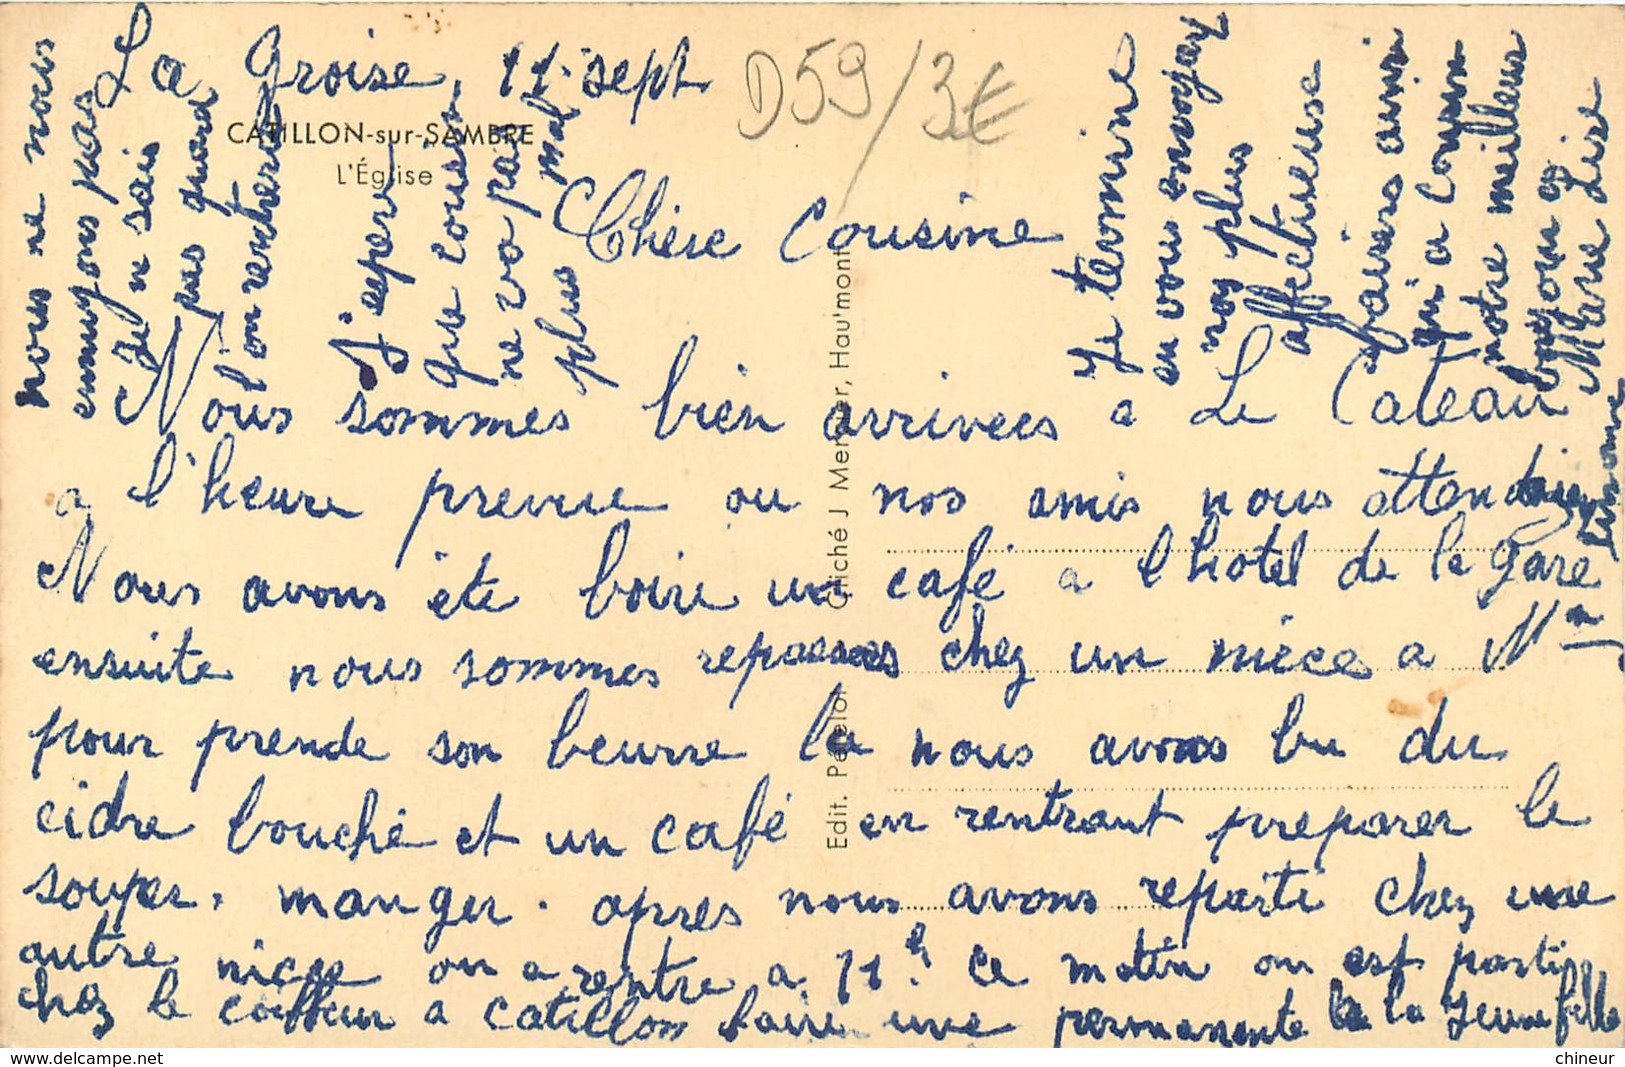 La Groise, 11 sept
D59/3€
CATILLON-sur-SAMBRE
L'Église
Chère Cousine
Nous sommes bien arrivees a Le Cateau
a l'heure prevue ou nos amis nous attendaient
Nous avons été boire un café a l'hotel de la Gare
ensuite nous sommes repassees chez un nièce a Mme
pour prende son beurre la nous avons bu du
cidre bouché et un café en rentrant preparer le
souper. manger. apres nous avons reparti chez une
autre niece on a rentre a 11h Ce matin on est parti
chez le coiffeur a Catillon faire une permanente a la Jeune fille
nous ne nous
ennuyons pas
Je n sais
pas quand
l'on rentrera
J'espere
que cousin
ne va pas
plus mal
Je termine
en vous envoyant
nos plus
affectueuse
baisers ainsi
qu'a cousin
notre meilleur
Marie Lise
Simone
Edit. Cliché J Mercier, Hau'mont
chineur